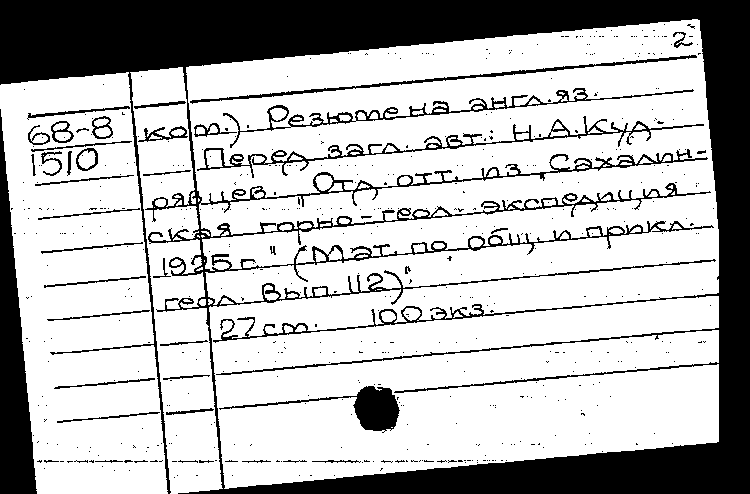 2
68-8 кот.). Резюме на англ. яз.
1510 Перед загл. авт.: Н.А. Куд-
рявцев. "Отд. отт. из „Сахалин-
ская горно-геол. экспедиция
1925 г." (Мат. по общ. и прикл.
геол. Вып. 112)".
27 см. 100 экз.